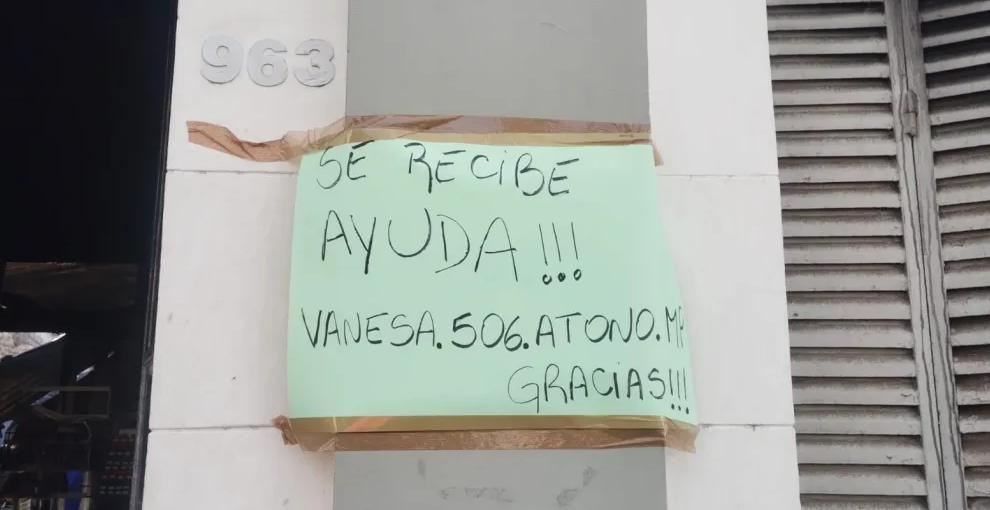 963
SE RECIBE
AYUDA!!!
VANESA.506.ATONO.MP
GRACIAS!!!